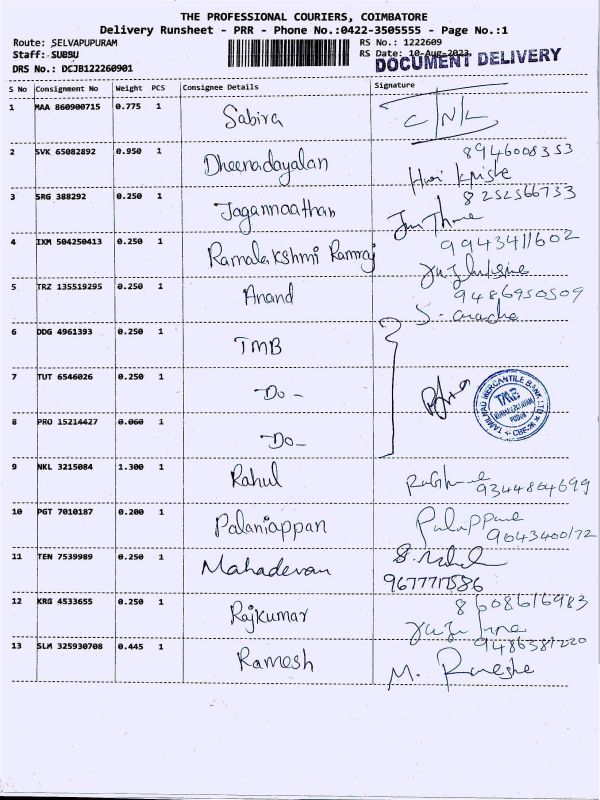 THE PROFESSIONAL COURIERS, COIMBATORE
Delivery Runsheet - PRR - Phone No.:0422-3505555 - Page No.:1
Route: SELVAPUPURAM
RS No.: 1222609
Staff: SUBSU
RS Date: 10-Aug-2023
DOCUMENT DELIVERY
DRS No.: DCJB122260901
S No Consignment No Weight PCS Consignee Details Signature
1 MAA 860900715 0.775 1 Sabira C/N/L
2 SVK 65082892 0.950 1 Dheenadayalan 8946008353
3 SRG 388292 0.250 1 Jagannaathan 8252566733
4 IXM 504250413 0.250 1 Ramalakshmi Ramraj 9943411602
5 TRZ 135519295 0.250 1 Anand 9486950509
6 DDG 4961393 0.250 1 TMB
7 TUT 6546026 0.250 1 Do-
TAMILNAD MERCANTILE BANK LTD
TMB
8 PRO 15214427 0.060 1 Do-
9 NKL 3215084 1.300 1 Rahul 9344864699
10 PGT 7010187 0.200 1 Palaniappan 9043400172
11 TEN 7539989 0.250 1 Mahadevan
12 KRG 4533655 0.250 1 Rajkumar 8608616983
13 SLM 325930708 0.445 1 Ramesh 9486381220
M.